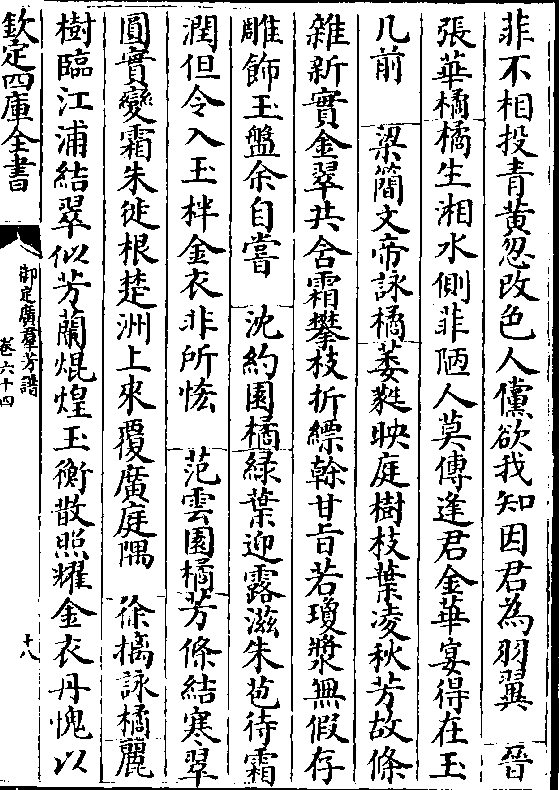 菲不相投青黄忽改色人儻欲我知因君為羽翼　晉
張華橘橘生湘水側菲陋人莫傳逢君金華宴得在玉
几前　梁簡文帝詠橘萎蕤映庭樹枝葉凌秋芳故條
雜新實金翠共含霜攀枝折縹幹甘旨若瓊漿無假存
雕飾玉盤余自嘗　沈約園橘緑葉迎露滋朱苞待霜
潤但令入玉柈金衣非所恡　范雲園橘芳條結寒翠
圓實變霜朱徙根楚洲上來覆廣庭隅　徐摛詠橘麗
樹臨江浦結翠似芳蘭焜煌玉衡散照耀金衣丹愧以
欽定四庫全書
御定廣羣芳譜
卷六十四
十八